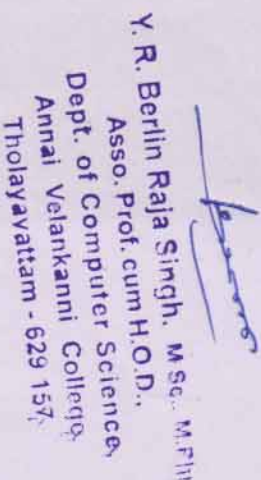 Y. R. Berlin Raja Singh. M Sc., M.Phil
Asso. Prof. cum H.O.D.,
Dept. of Computer Science,
Annai Velankanni College,
Tholayavattam - 629 157.